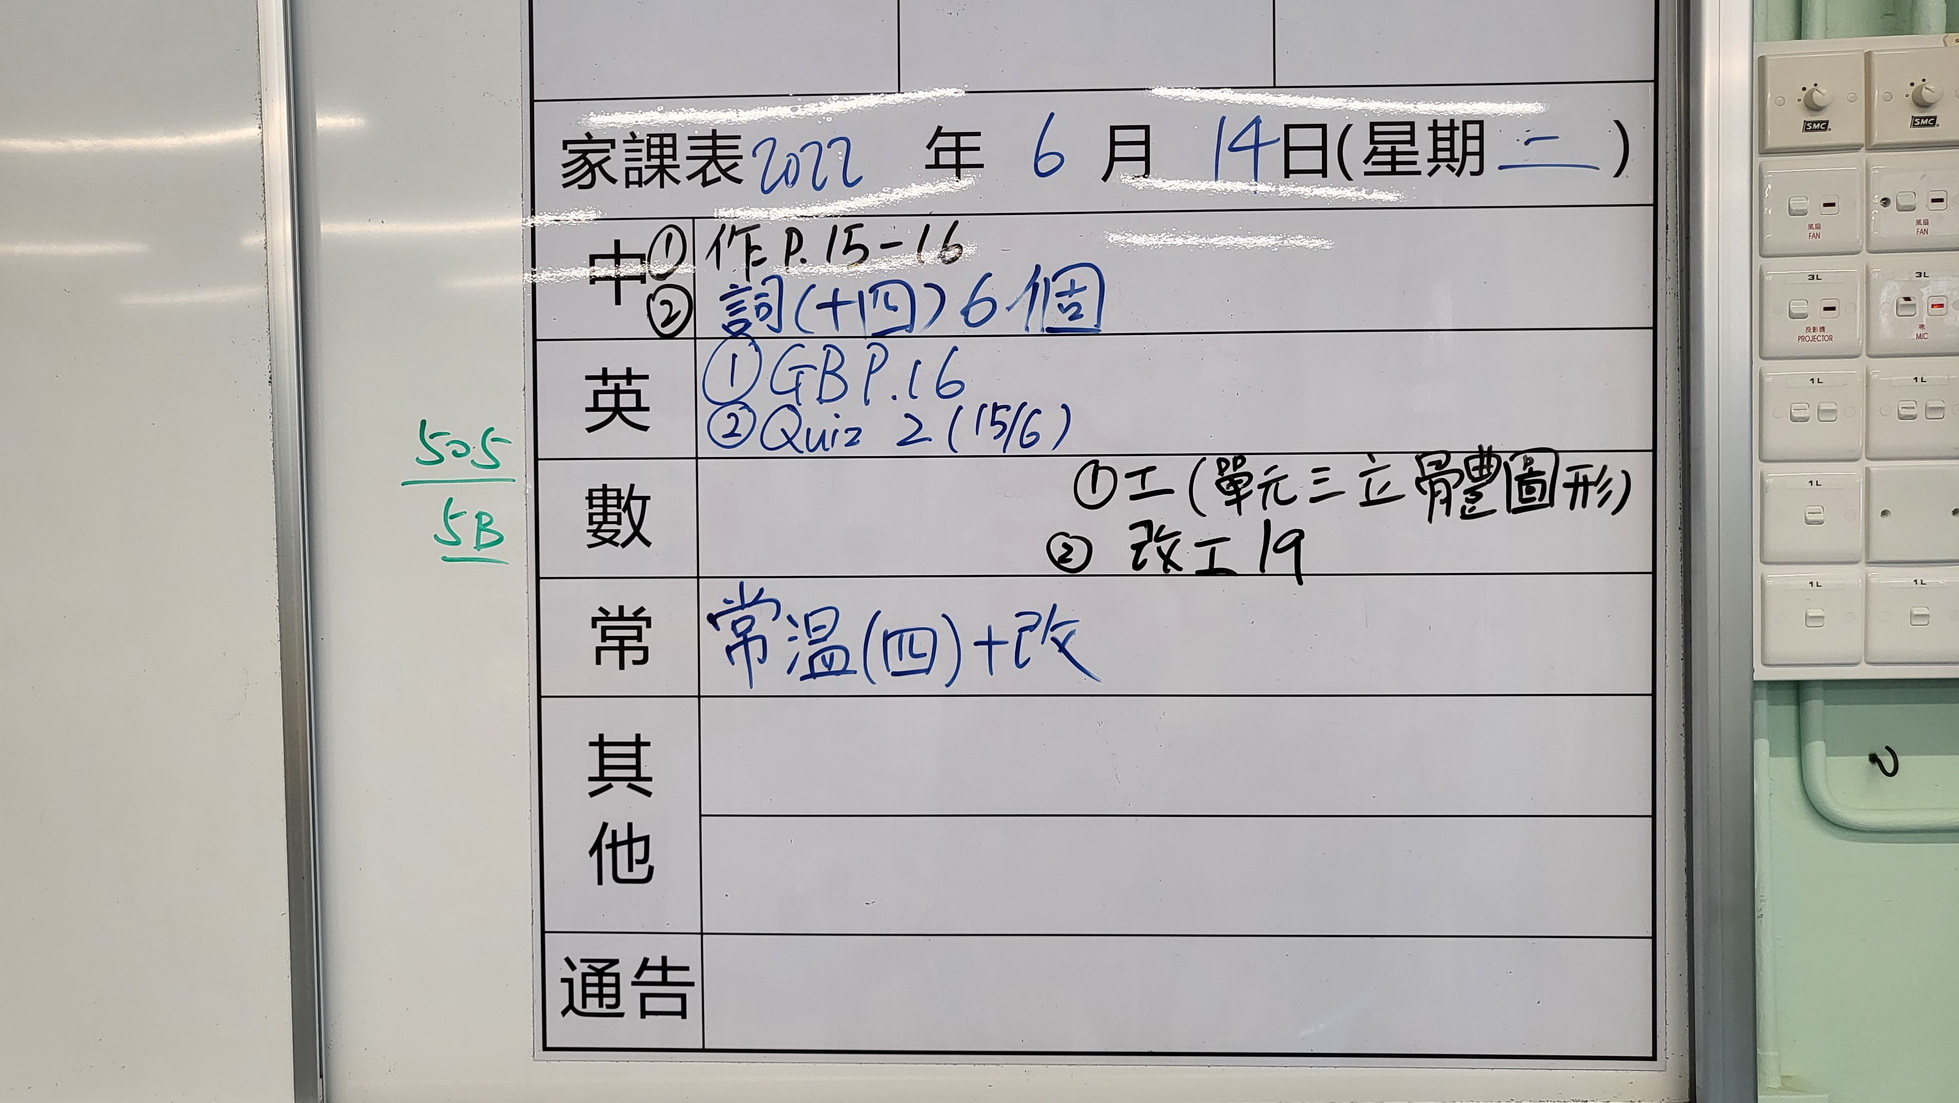 家課表2022年6月14日(星期二)
中 ①作P.15-16
②詞(十四)6個
英 ①GB P.16
②Quiz 2(15/6)
505
5B
數 ①工(單元三立體圖形)
②改工19
常 常溫(四)+改
其他
通告
SMC SMC
風扇 風扇
FAN FAN
3L 3L
投影機 咪
PROJECTOR MIC
1L 1L
1L
1L 1L